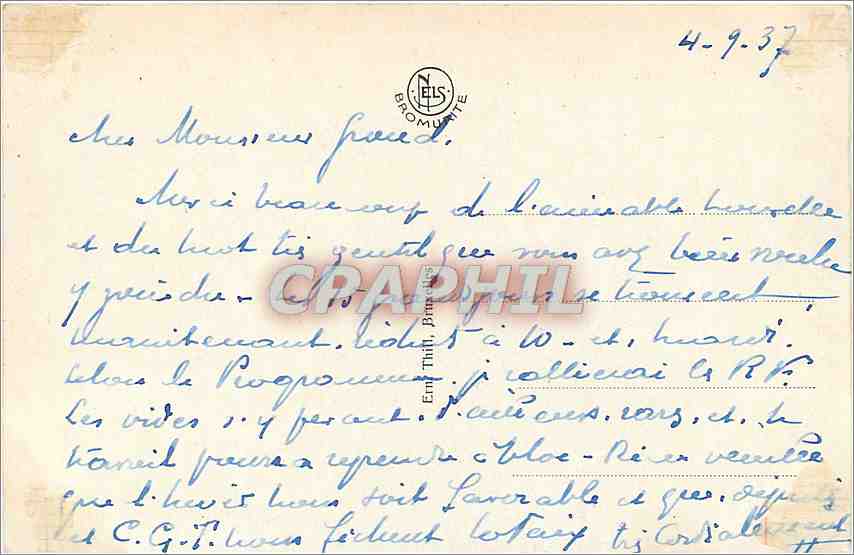 4-9-37
NELS
BROMURITE
Cher Monsieur
Merci beaucoup de l'aimable
et du mot très gentil que vous avez bien voulu
y joindre - se trouvent
CRAPHIL
Ern. Thill, Bruxelles
maintenant réduits à 10 - et, mardi
selon le Programme, je rallierai la R.P.
Les vides s'y feront d'ailleurs rares, et le
travail pourra reprendre à bloc -
que l'hiver nous soit favorable et que
les C.G.T. nous fichent la Paix très Cordialement